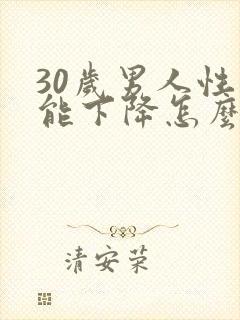 30歲男人性
能下降怎麼
清安荣